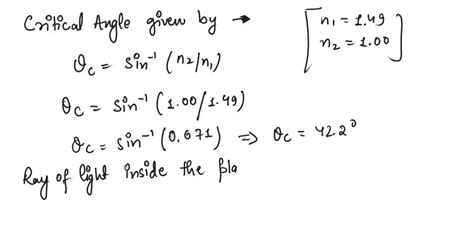 Critical Angle given by →
n₁ = 1.49
n₂ = 1.00
θc = sin⁻¹ (n₂/n₁)
θc = sin⁻¹ (1.00/1.49)
θc = sin⁻¹ (0.671) ⇒ θc = 42.2°
Ray of light inside the pla